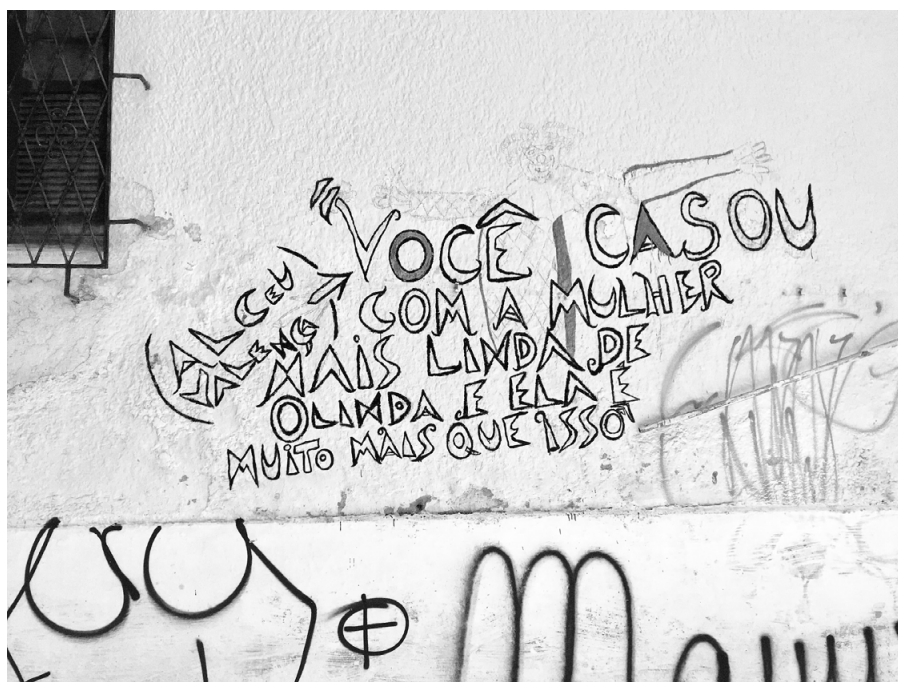 ALCEU
VALENÇA
VOCÊ CASOU
COM A MULHER
MAIS LINDA DE
OLINDA E ELA É
MUITO MAIS QUE ISSO